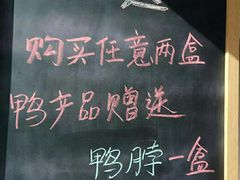 购买任意两盒
鸭产品赠送
鸭脖一盒